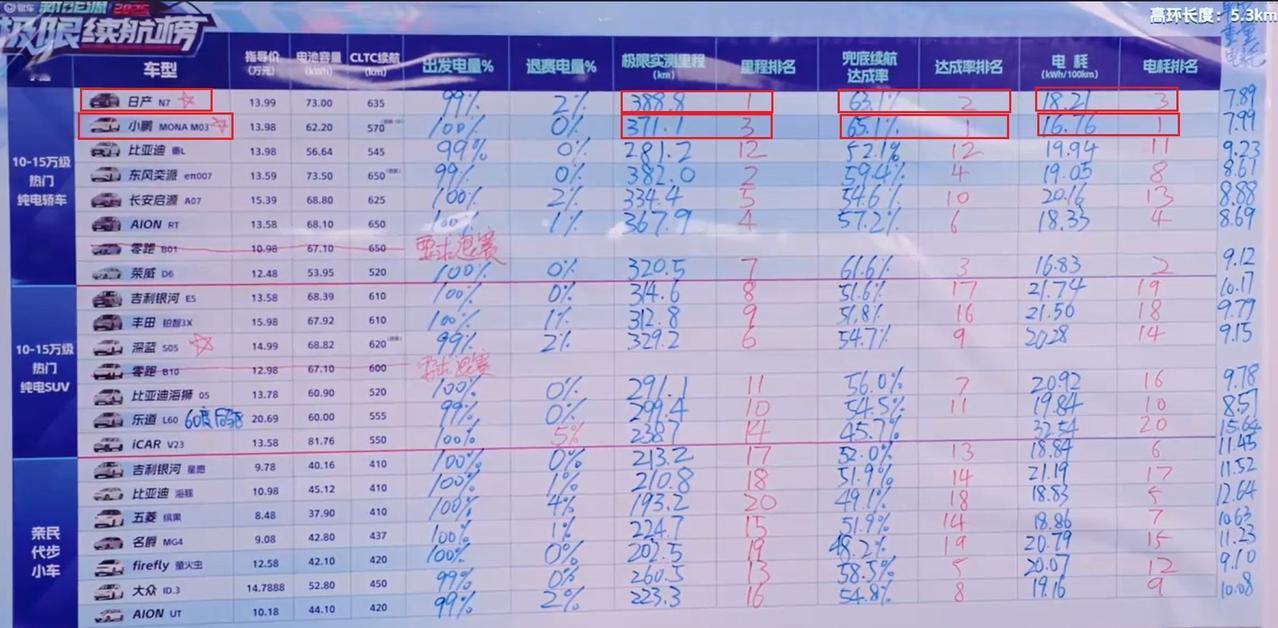 懂车 新能源 2025
极限续航榜
高环长度：5.3km
车型 指导价(万元) 电池容量(kWh) CLTC续航(km) 出发电量% 退赛电量% 极限实测里程(km) 里程排名 兜底续航达成率 达成率排名 电耗(kWh/100km) 电耗排名
10-15万级热门纯电轿车
日产 N7 13.99 73.00 635 99% 2% 388.8 1 63.1% 2 18.21 3 7.89
小鹏 MONA M03 13.98 62.20 570 100% 0% 371.1 3 65.1% 1 16.76 1 7.99
比亚迪 秦L 13.98 56.64 545 99% 0% 281.2 12 52.1% 12 19.94 11 9.23
东风奕派 eπ007 13.59 73.50 650 99% 0% 382.0 2 59.4% 4 19.05 8 8.61
长安启源 A07 15.39 68.80 625 100% 2% 334.4 5 54.6% 10 20.16 13 8.88
AION RT 13.58 68.10 650 100% 1% 367.9 4 57.2% 6 18.33 4 8.69
零跑 B01 10.98 67.10 650 要求退赛
荣威 D6 12.48 53.95 520 100% 0% 320.5 7 61.6% 3 16.83 2 9.12
10-15万级热门纯电SUV
吉利银河 E5 13.58 68.39 610 100% 0% 314.6 8 51.6% 17 21.74 19 10.17
丰田 铂智3X 15.98 67.92 610 100% 1% 312.8 9 51.8% 16 21.50 18 9.79
深蓝 S05 14.99 68.82 620 99% 2% 329.2 6 54.7% 9 20.28 14 9.15
零跑 B10 12.98 67.10 600 要求退赛
比亚迪海狮 05 13.78 60.90 520 100% 0% 291.1 11 56.0% 7 20.92 16 9.78
乐道 L60 20.69 60.00 555 99% 0% 10 54.5% 11 19.84 10 8.57
iCAR V23 13.58 81.76 550 100% 5% 238.7 14 45.7% 32.54 20 15.64
亲民代步小车
吉利银河 星愿 9.78 40.16 410 100% 0% 213.2 17 52.0% 13 18.84 6 11.45
比亚迪 海豚 10.98 45.12 410 100% 1% 210.8 18 51.9% 14 21.19 17 11.52
五菱 缤果 8.48 37.90 410 100% 4% 193.2 20 49.1% 18 18.83 5 12.64
名爵 MG4 9.08 42.80 437 100% 1% 224.7 15 51.9% 14 18.86 7 10.63
firefly 萤火虫 12.58 42.10 420 100% 0% 202.5 19 48.2% 19 20.79 15 11.23
大众 ID.3 14.7888 52.80 450 99% 0% 260.5 13 58.5% 5 20.07 12 9.10
AION UT 10.18 44.10 420 99% 2% 223.3 16 54.8% 8 19.16 9 10.08